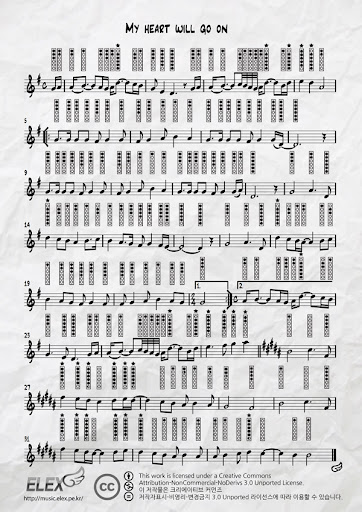 MY HEART WILL GO ON
5
9
14
19
1.
2.
23
27
31
ELEX
http://music.elex.pe.kr/
cc
This work is licensed under a Creative Commons
Attribution-NonCommercial-NoDerivs 3.0 Unported License.
이 저작물은 크리에이티브 커먼즈
저작자표시-비영리-변경금지 3.0 Unported 라이선스에 따라 이용할 수 있습니다.